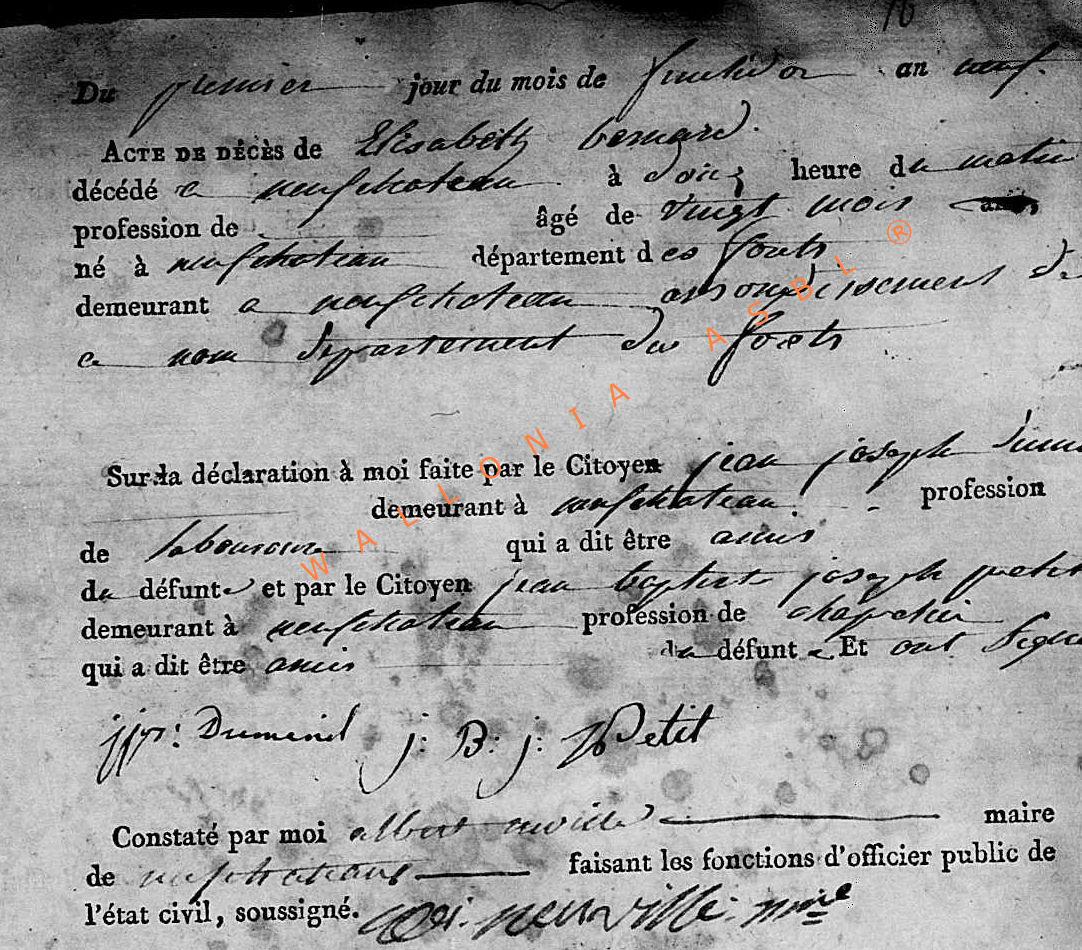 16
Du premier jour du mois de fructidor an neuf.
ACTE DE DÉCÈS de Elisabeth bernard.
décédé a neufchateau à onze heure du matin
profession de âgé de vingt mois
né à neufchateau département des forets
demeurant a neufchateau arrondissement de
ce nom departement des forets
Sur la déclaration à moi faite par le Citoyen jean joseph
demeurant à neufchateau profession
de laboureur qui a dit être amis
da défunte et par le Citoyen jean baptiste joseph petit
demeurant à neufchateau profession de chapelier
qui a dit être amis da défunte Et ont
jjp: Dumenil j: B: j: Petit
Constaté par moi albert maire
de neufchateau faisant les fonctions d'officier public de
l'état civil, soussigné. neuville
WALLONIA ASBL ®